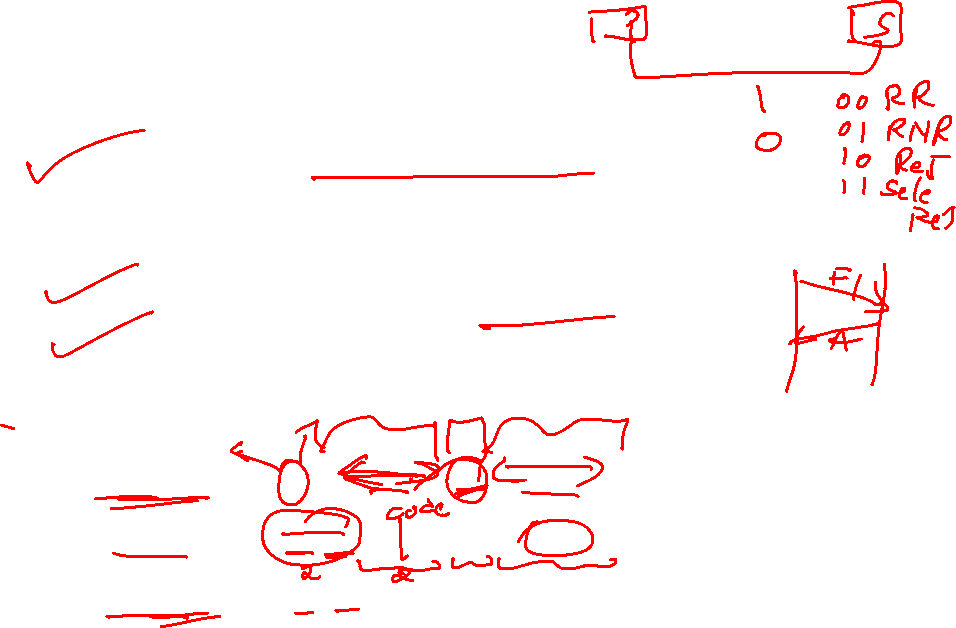 P S
1
0
00 RR
01 RNR
10 ReJ
11 Sele
ReJ
F1
A
code
2 2